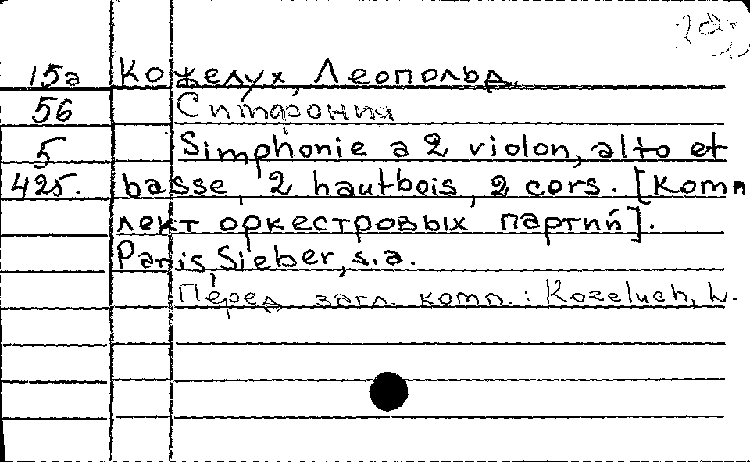 15а Кожелух, Леопольд.
56 Симфония
5 Simphonie a 2 violon, alto et
425. basse, 2 hautbois, 2 cors. [Комп
лект оркестровых партий].
Paris, Sieber, s.a.
Перед загл. комп.: Kozeluch, L.